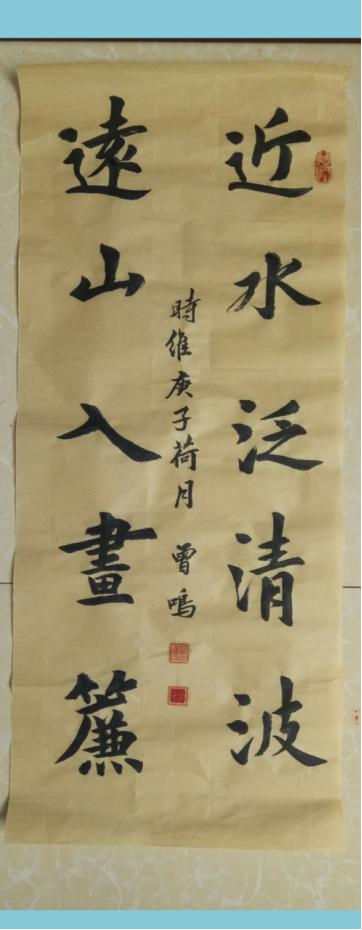 近水泛清波
遠山入畫簾
時維庚子荷月 曾鳴